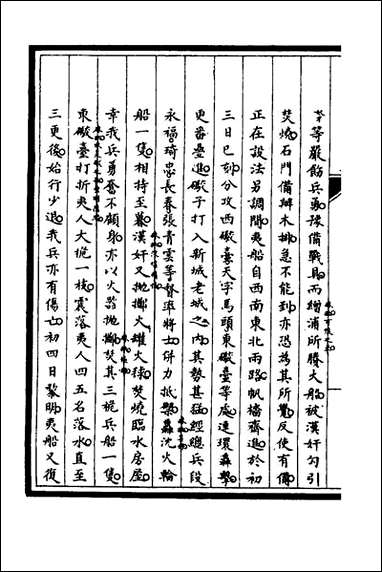 等嚴飭兵勇豫備戰具而繒浦所勝大船被漢奸勾引
焚燒石門備辦木排急不能到亦恐為其所覺反使有備
正在設法另調間夷船自西南東北兩路帆檣齊進於初
三日巳刻分攻西礮臺天字馬頭東礮臺等處連環轟擊
更番疊進礮子打入新城老城之內其勢甚猛經總兵段
永福琦忠長春張青雲等督率將士併力抵禦轟沈火輪
船一隻相持至暮漢奸又拋擲火罐火球焚燒臨水房屋
幸我兵勇奮不顧身亦以火器拋擲焚其三桅兵船一隻
東礮臺打折夷人大桅一枝震落夷人四五名落水直至
三更後始行少退我兵亦有傷亡初四日黎明夷船又復